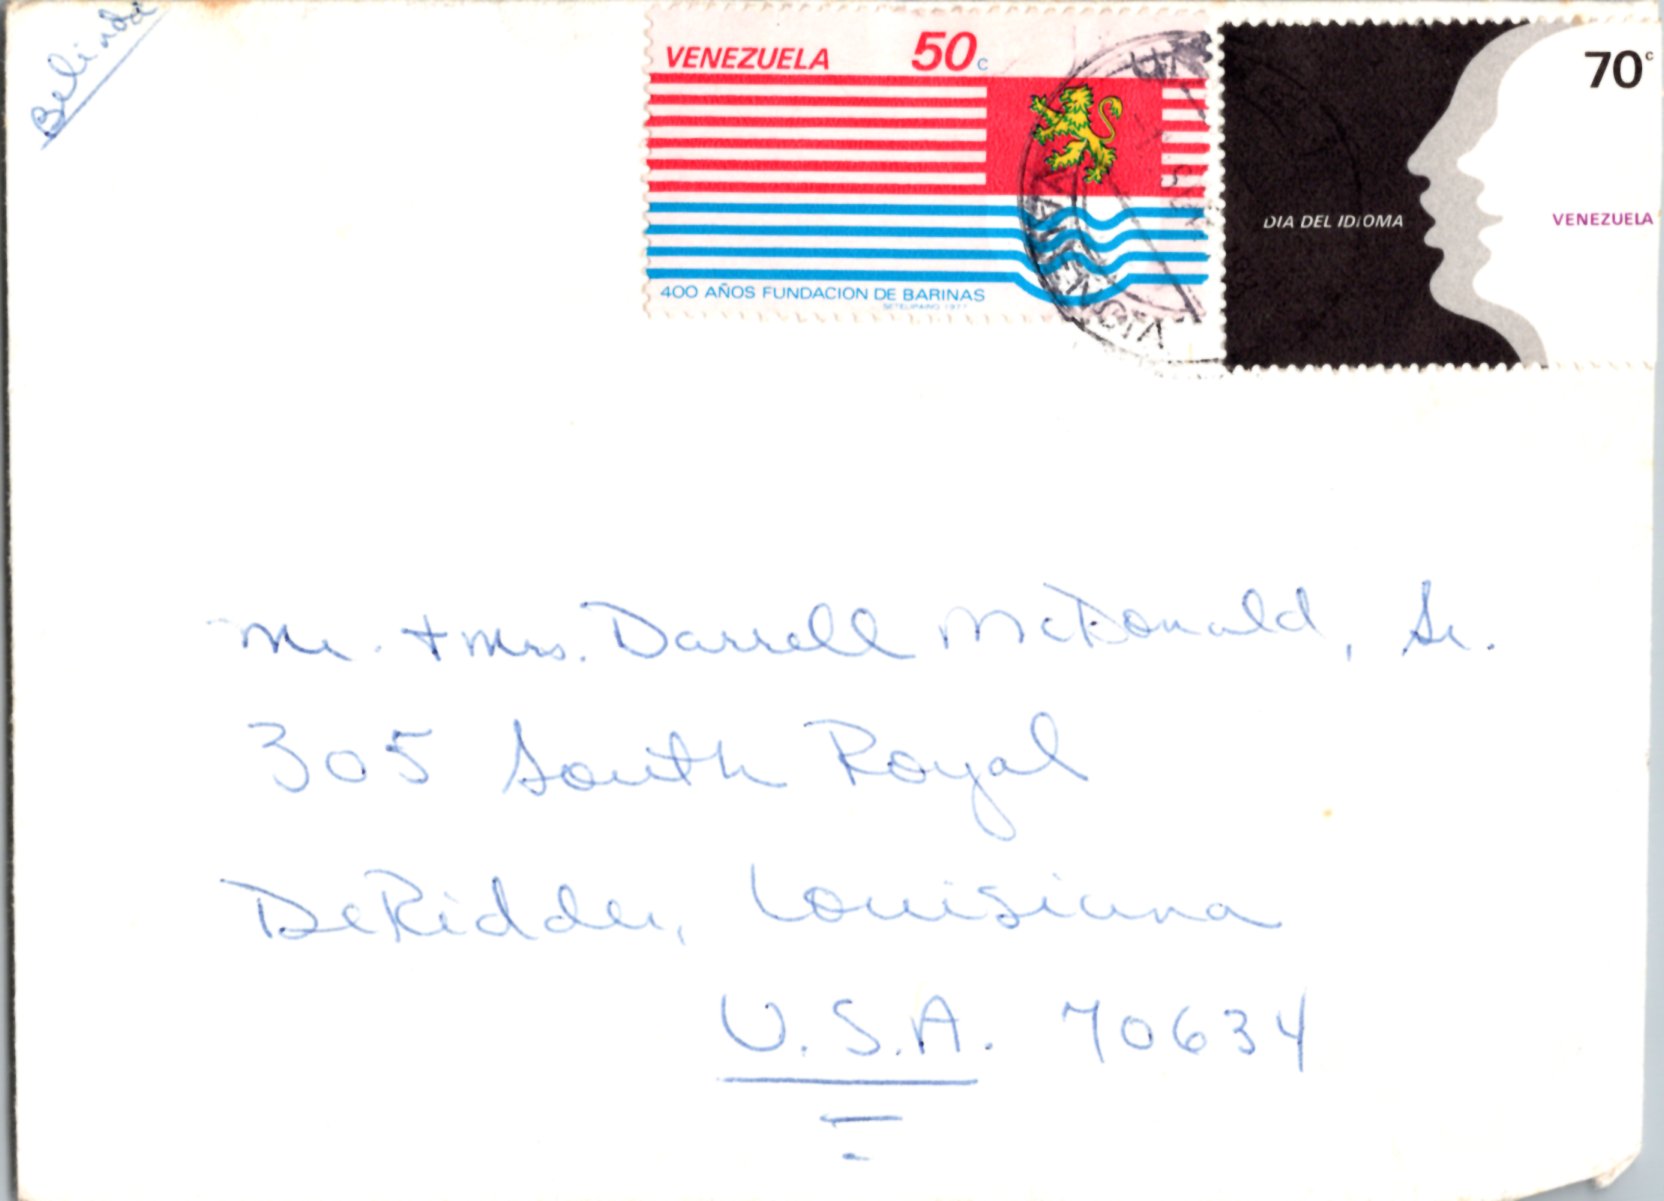 Belinda
VENEZUELA 50c
400 AÑOS FUNDACION DE BARINAS
VALENCIA
70c
DIA DEL IDIOMA
VENEZUELA
Mr. + Mrs. Darrell McDonald, Sr.
305 South Royal
DeRidder, Louisiana
U.S.A. 70634